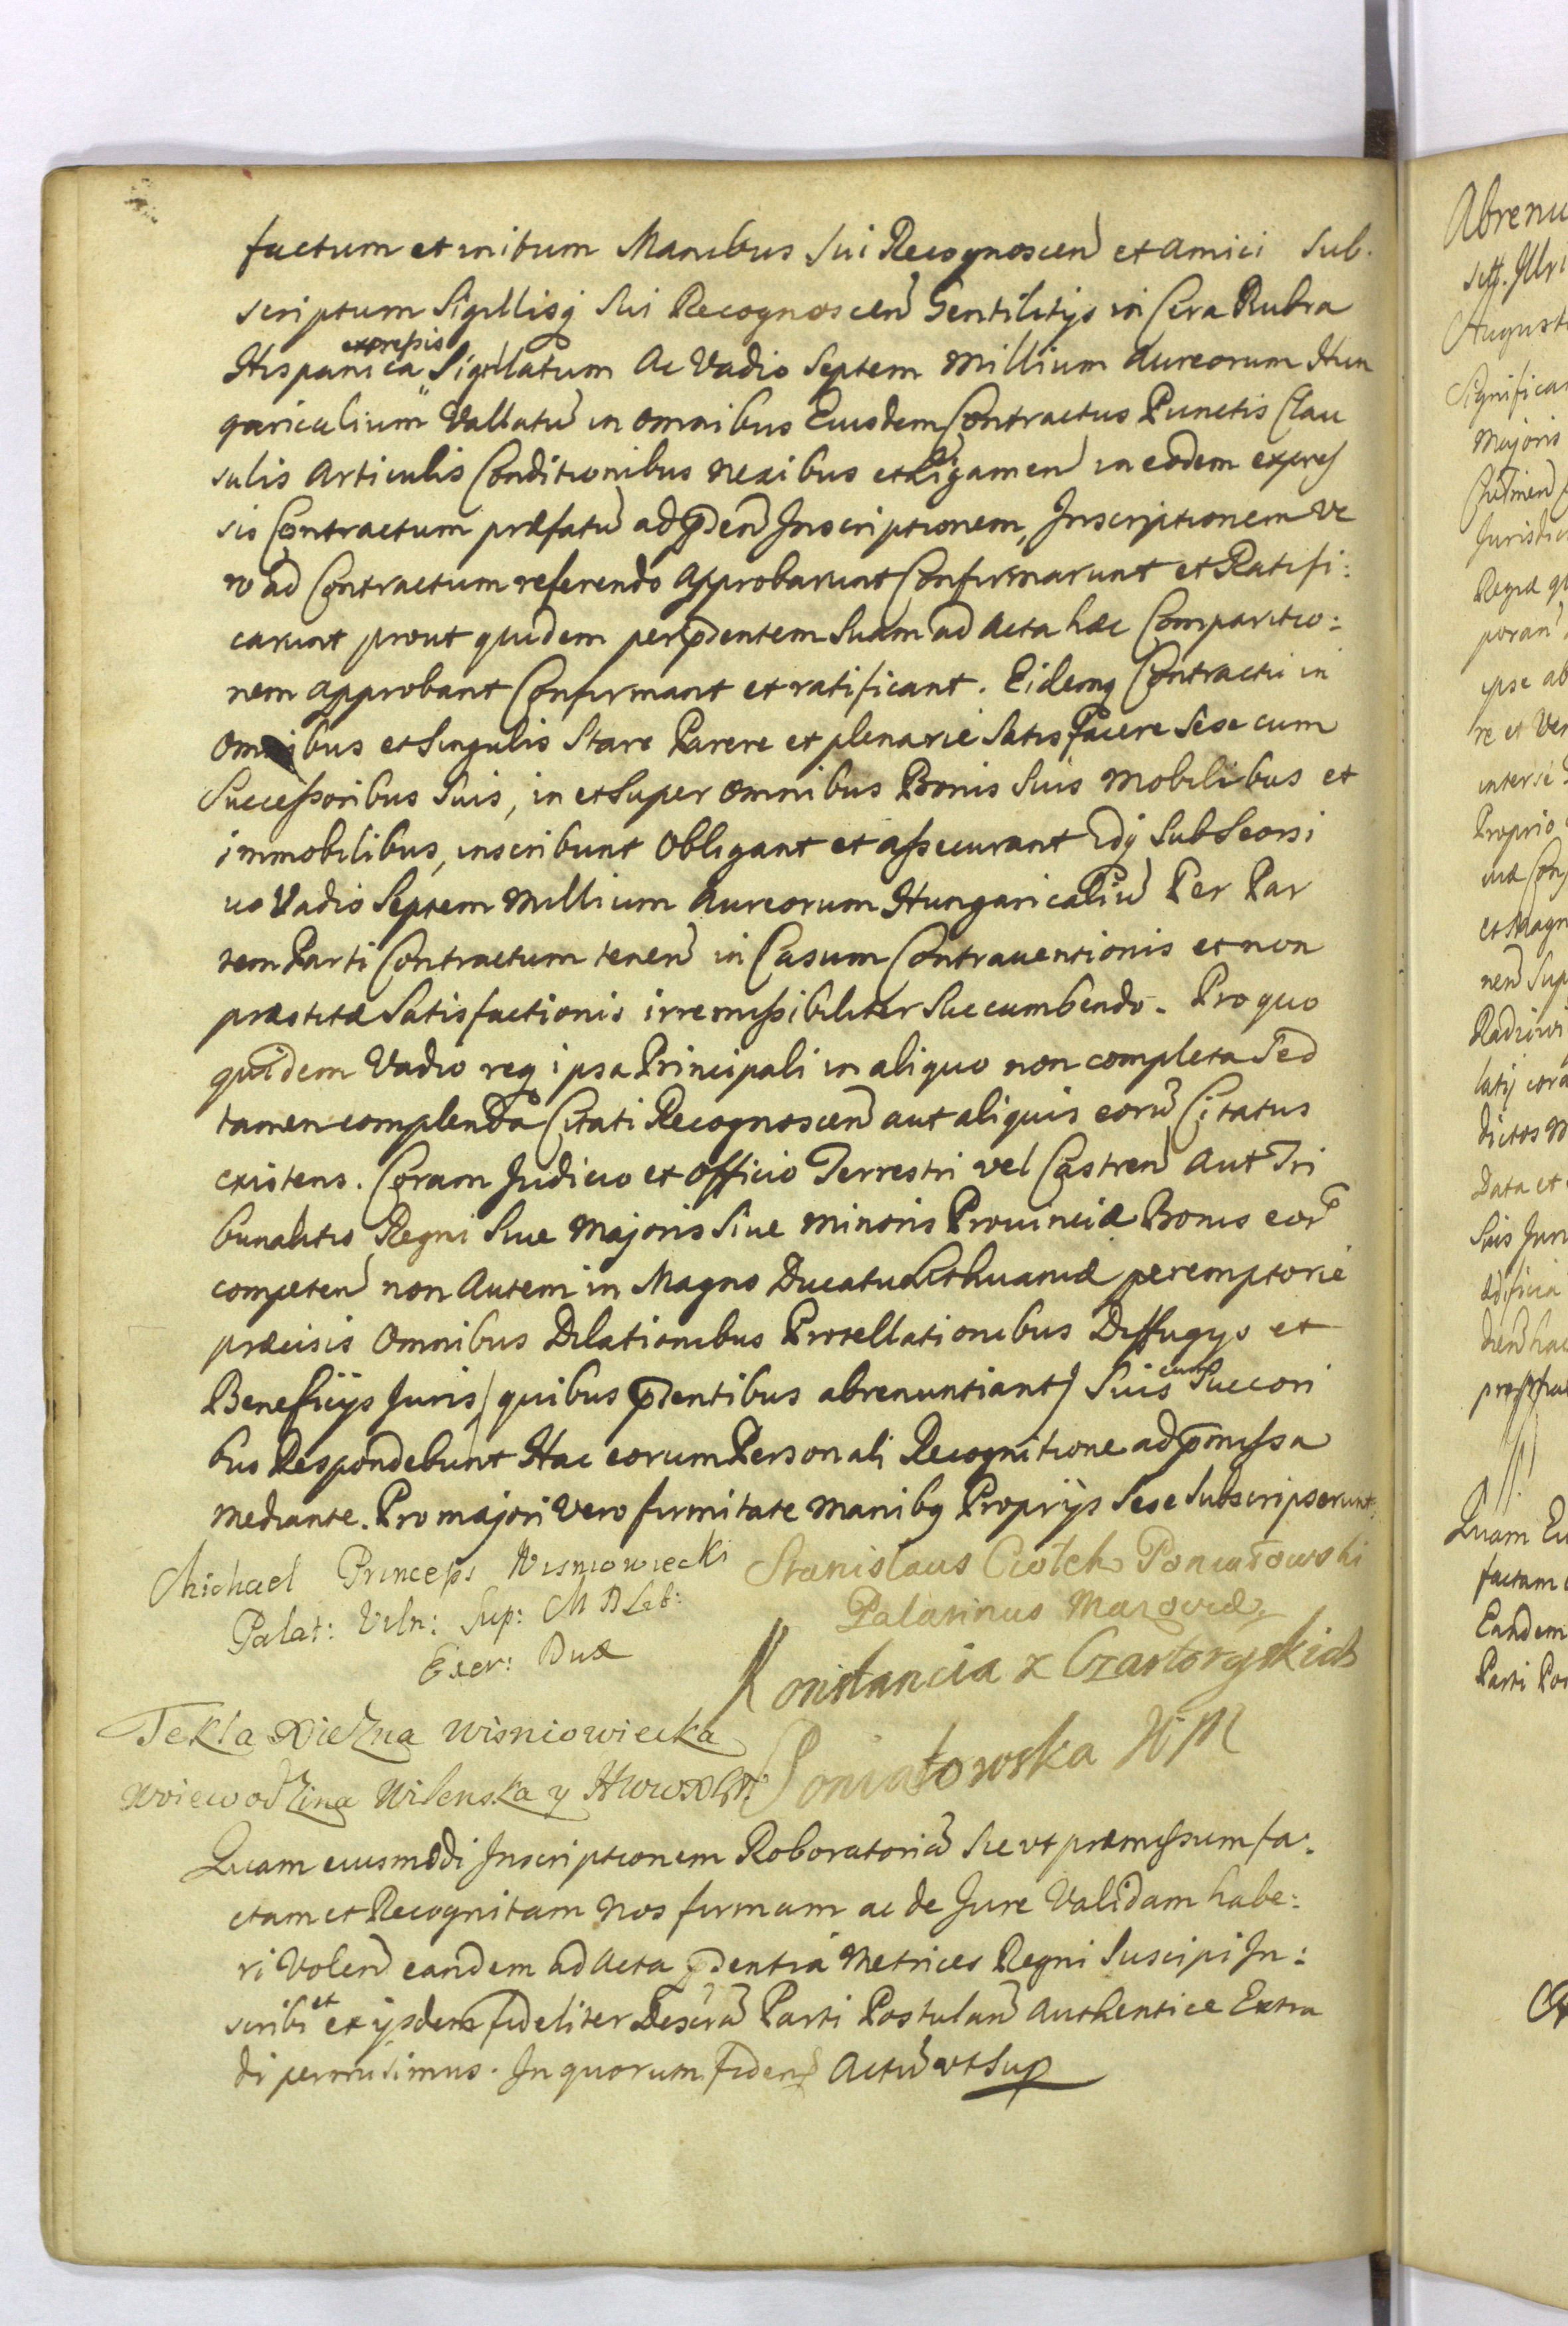 factum et initum Manibus Sui Recognoscen et Amici Sub.
scriptum Sigillisq Sui Recognoscen Gentilitijs in Cera Rubra
Hispanica expressis Sigillatum Ac Vadio Septem Millium Aureorum Hun
garicalium Vallatū in omnibus Eiusdem Contractus Punctis Clau
sulis Articulis Conditionibus Nexibus et Ligamen in eodem expres
sis Contractum præfatū ad p̄den Inscriptionem, Inscriptionem ve
ro ad Contractum referendo Approbarunt Confirmarunt et Ratifi:
carunt prout quidem per p̄dentem Suam ad Acta hæc Comparitio:
nem Approbant Confirmant et ratificant. Eidemq Contractui in
Omnibus et Singulis Stare Parere et plenarie Satisfacere Sese cum
Successoribus Suis, in et Super Omnibus Bonis Suis Mobilibus et
immobilibus, inscribunt Obligant et assecurant Idq Sub Seorsi
uo Vadio Septem Millium Aureorum Hungaricaliū Per Par
tem Parti Contractum tenen in Casum Contrauentionis et non
præstitæ Satisfactionis irremissibiliter Succumbendo. Pro quo
quidem Vadio req ipsa Principali in aliquo non completa Sed
tamen complenda Citati Recognoscen aut aliquis eorū Citatus
existens. Coram Judicio et Officio Terrestri vel Castren Aut Tri
bunalitio Regni Siue Majoris Siue Minoris Prouinciæ Bonis eor
competen non Autem in Magno Ducatu Lithuaniæ peremptorie
præcisis Omnibus Dilationibus Procellationibus Diffugijs et
Beneficijs Juris (quibus p̄dentibus abrenuntiant) Suis cum Succori
bus Respondebunt Hac eorum Personali Recognitione ad p̄missa
Mediante. Pro majori Vero firmitate Manibq Proprijs Sese Subscripserunt.
Michael Princeps Wisniowiecki
Palat: Viln: Sup: M D Lit:
Exer: Dux
Stanislaus Ciołek Poniatowski
Palatinus Mazoviæ
Konstancia x Czartoryskich
Poniatowska W M
Tekla Xiezna Wisniowiecka
Woiewodzina Wilenska y HWWXLitt:
Quam eiusmodi Inscriptionem Roboratoriā Sic vt præmissum fa:
ctam et Recognitam Nos firmam ac de Jure Validam habe:
ri Volen eandem ad Acta p̄dentia Metrices Regni Suscipi In:
scribi et ex ijsdem fideliter Parti Postulan Authentice Extra
di permisimus. In quorum fidem Actū vt Sup
Abrenu
Augusti
Significa
Majoris
Jurisdi
poran
ipse ab
re et Ver
inter se
Proprio
et Magn
nen Sup
Radziwi
latij cora
dictos M
Data et
Suis Jur
ædificia
Quam Eu
factam
Eandem
Parti Pos